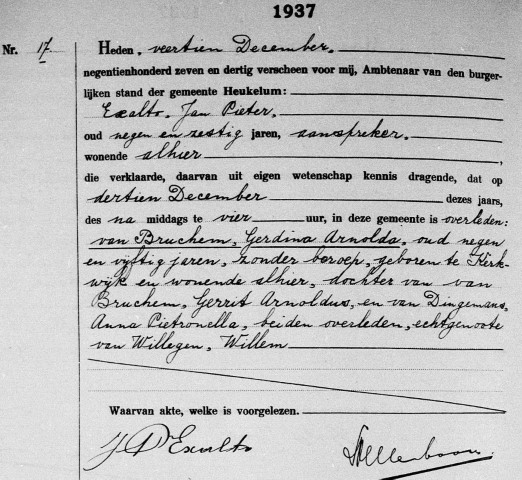 1937
Nr. 17 Heden, veertien December.
negentienhonderd zeven en dertig verscheen voor mij, Ambtenaar van den burger-
lijken stand der gemeente Heukelum:
Exalto, Jan Pieter,
oud negen en zestig jaren, aanspreker,
wonende alhier,
die verklaarde, daarvan uit eigen wetenschap kennis dragende, dat op
dertien December dezes jaars,
des na middags te vier uur, in deze gemeente is overleden:
van Bruchem, Gerdina Arnolda, oud negen
en vijftig jaren, zonder beroep, geboren te Kerk-
wijk en wonende alhier, dochter van van
Bruchem, Gerrit Arnoldus, en van Dingemans,
Anna Pietronella, beiden overleden, echtgenoote
van Willegen, Willem
Waarvan akte, welke is voorgelezen.
J P Exalto